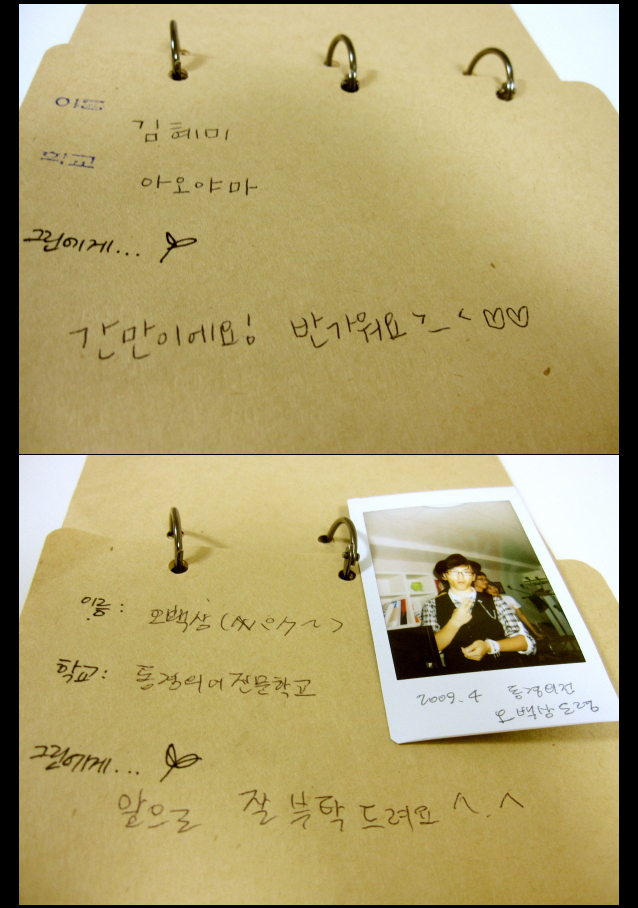 이름
김혜미
학교
아오야마
그린에게...
간만이에요! 반가워요 ^_^ ♡♡
이름: 오백상
학교: 동경외어전문학교
그린에게...
앞으로 잘 부탁 드려요 ^.^
동경외전
오백상